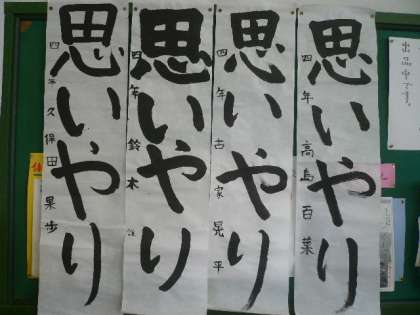 出品中です。
思いやり
四年 高島百菜
思いやり
四年 古家晃平
思いやり
四年 鈴木
思いやり
四年 久保田果歩